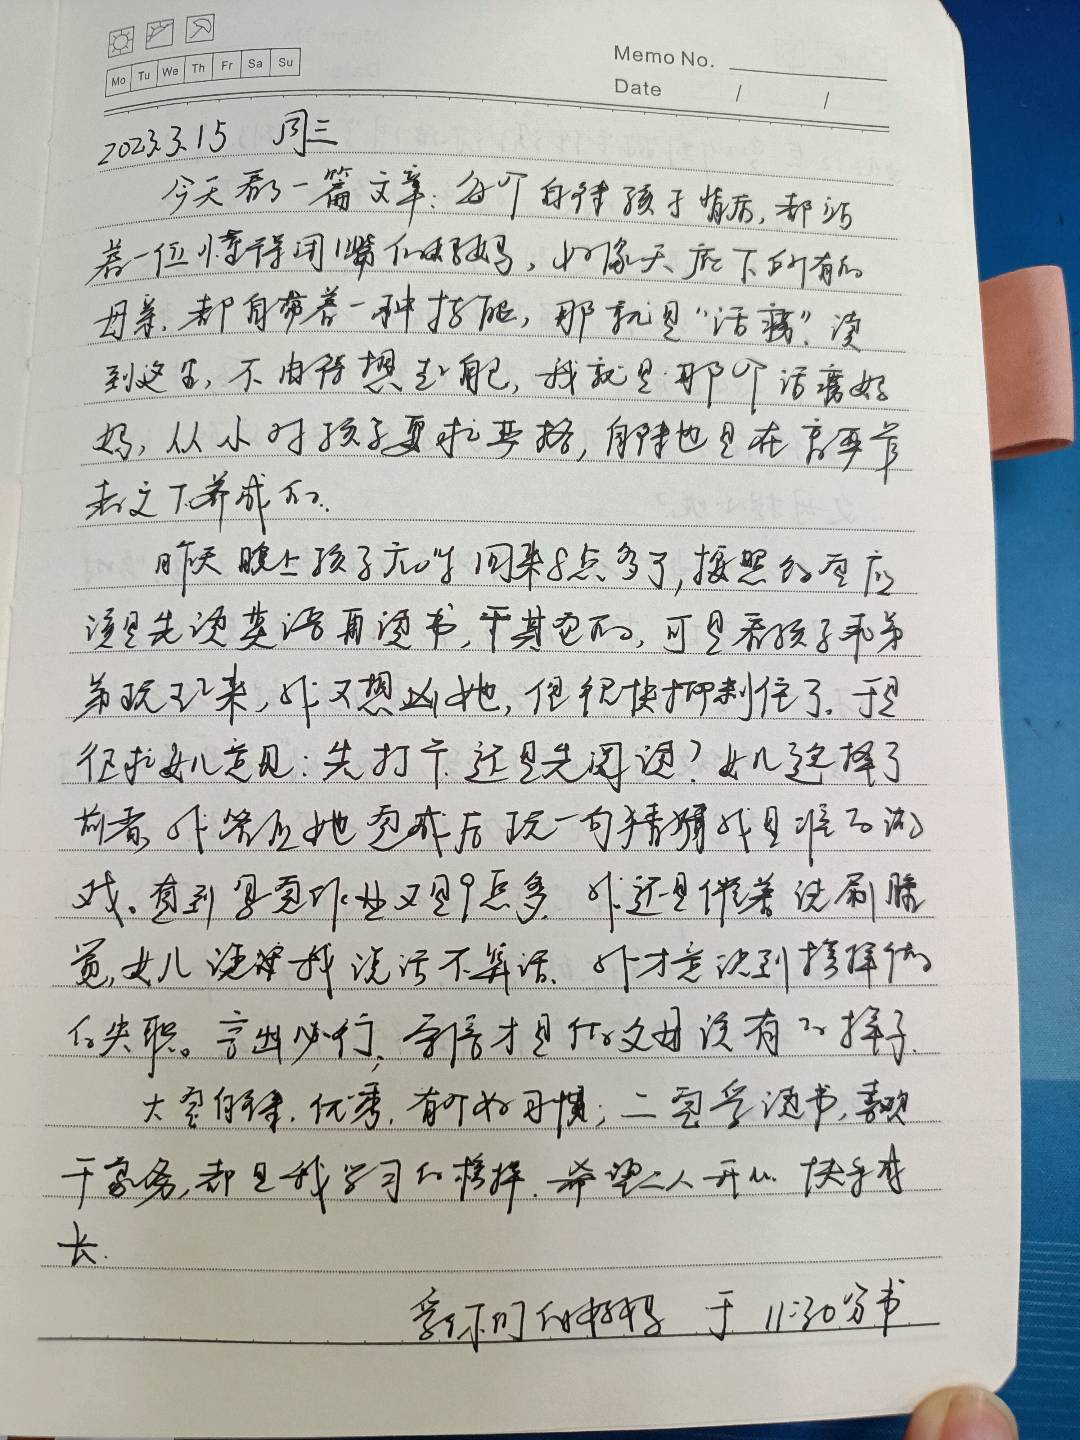 Mo Tu We Th Fr Sa Su
Memo No.
Date / /
2023.3.15 周三
今天看了一篇文章：每个自律孩子背后，都站
着一位懂得闭嘴的好妈妈，好像天底下所有的
母亲，都自带着一种技能，那就是“话痨”。读
到这里，不由得想到自己，我就是那个话痨妈
妈，从小对孩子要求严格，自律也是在高要求
之下养成的。
昨天晚上孩子 回来8点多了，按照约定应
该是先读英语再读书，干其他的，可是看孩子和弟
弟玩起来，我又想凶她，但很快抑制住了。于是
征求女儿意见：先打卡还是先阅读？女儿选择了
前者，我答应她完成后玩一句 猜猜我是谁的游
戏。直到写完作业又是9点多，我还是催着洗刷睡
觉，女儿 我说话不算话，我才意识到榜样做
的失职。言出必行， 才是做父母该有的样子。
大宝自律，优秀，有个好习惯；二宝爱读书，喜欢
干家务，都是我学习的榜样。希望二人开心 快乐成
长。
爱你们的好妈妈 于 11:30分书